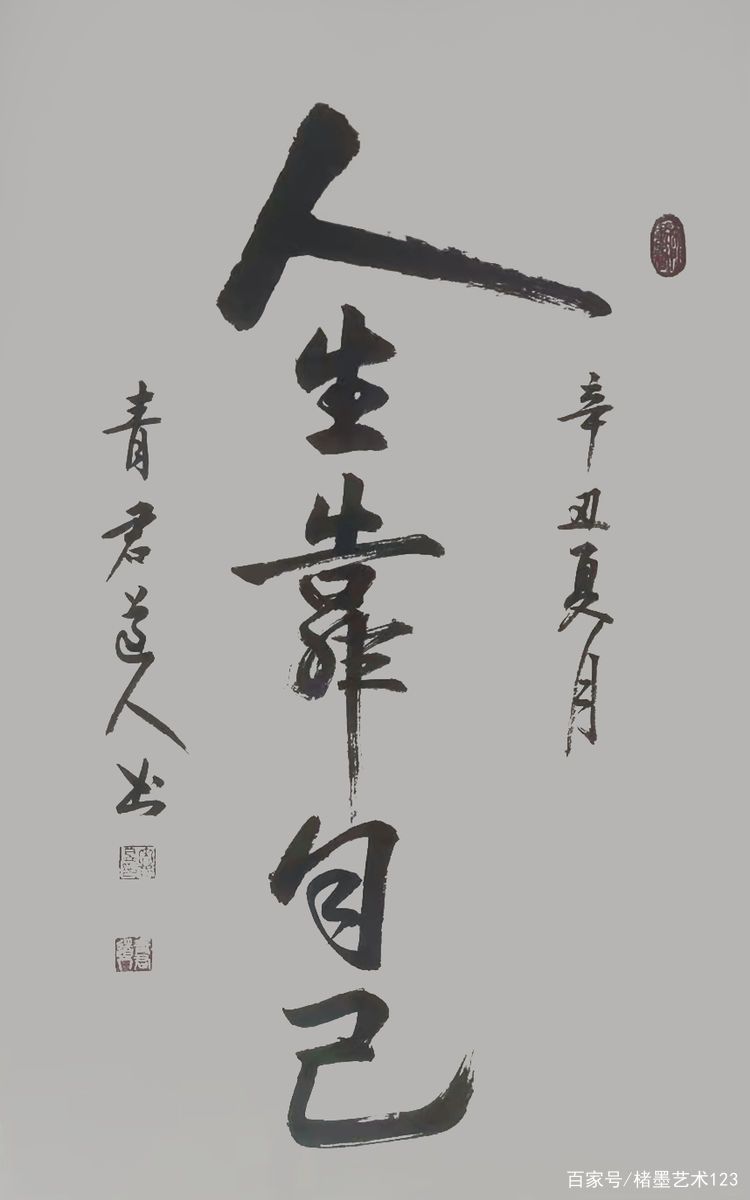 辛丑夏月
人生靠自己
青君道人书
百家号/楮墨艺术123